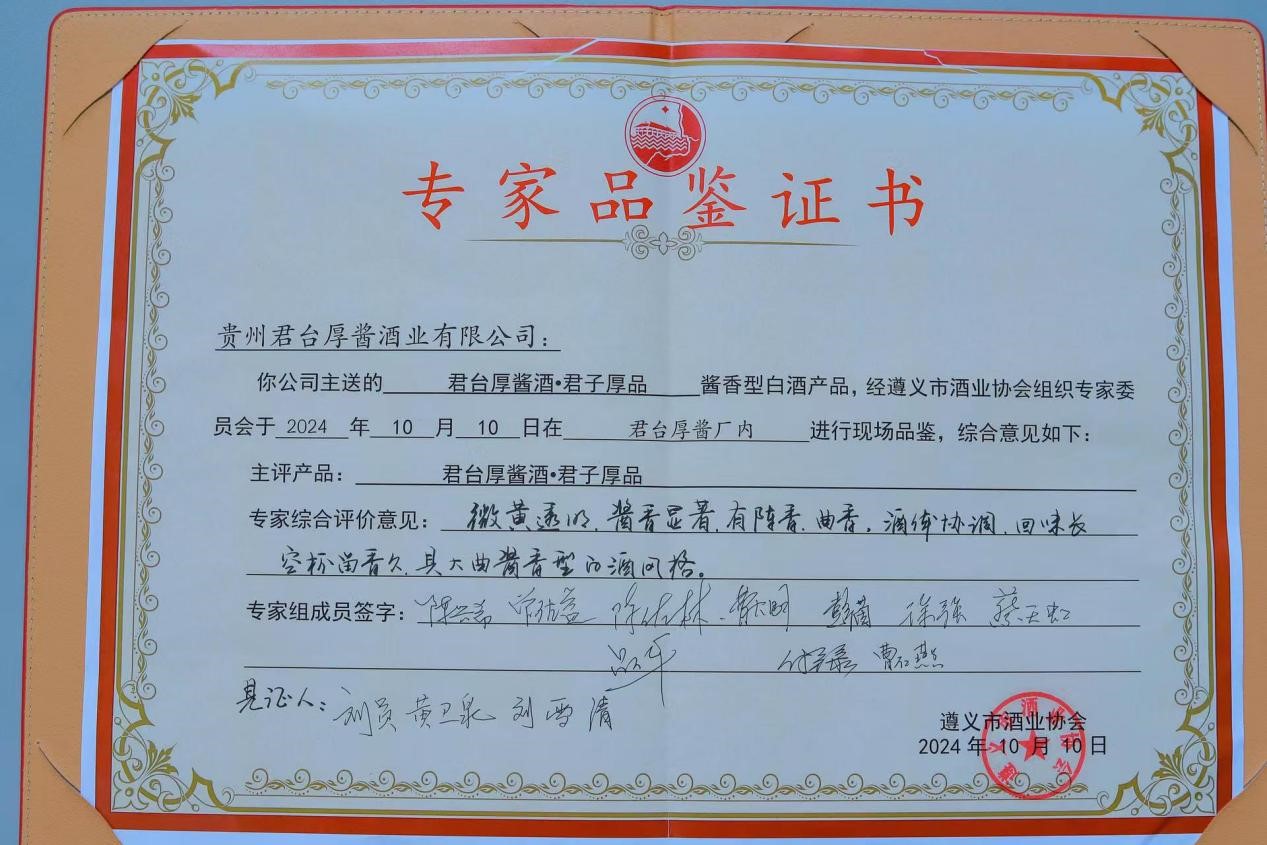 专家品鉴证书
贵州君台厚酱酒业有限公司：
你公司主送的 君台厚酱酒•君子厚品 酱香型白酒产品，经遵义市酒业协会组织专家委
员会于 2024 年 10 月 10 日在 君台厚酱厂内 进行现场品鉴，综合意见如下：
主评产品： 君台厚酱酒•君子厚品
专家综合评价意见： 微黄透明、酱香显著、有陈香、曲香，酒体协调、回味长
空杯留香久、具大曲酱香型白酒风格。
专家组成员签字： 徐强 蔡天虹
见证人： 刘员 黄卫泉 刘雪清
遵义市酒业协会
2024 年 10 月 10 日